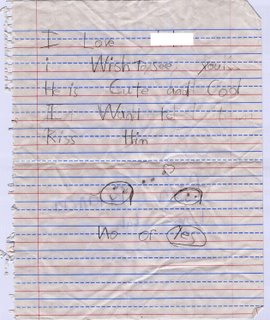 I Love
i Wish to see
He is Cute and Cool
I Want to
Kiss Him
No or Yes